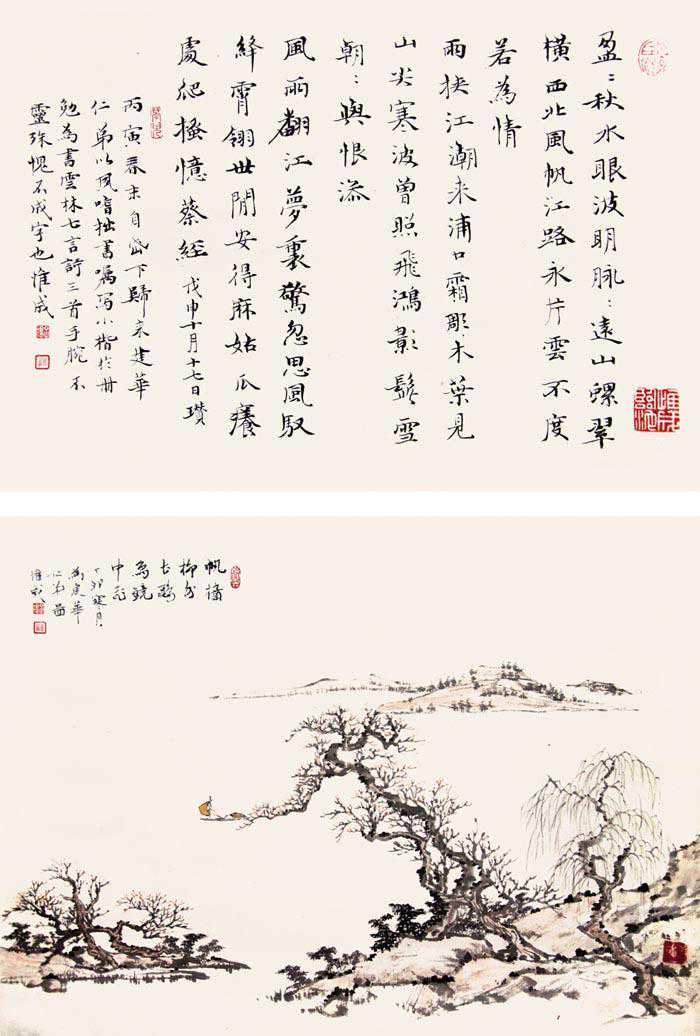 盈〻秋水眼波明脉〻遠山螺翠
橫西北風帆江路永片雲不度
若為情
雨挾江潮来浦口霜彫木葉見
山尖寒波曾照飛鴻影鬓雪
朝〻與恨添
風雨翻江夢裏驚忽思風馭
絳霄翎世間安得麻姑瓜癢
處爬搔憶蔡經
戊申十月十七日瓚
丙寅春末自岱下歸来建華
仁弟以夙嗜拙書囑寫小楷於册
勉為書雲林七言詩三首手腕不
靈殊愧不成字也惟成
帆檣
柳外
鳥鏡
中飛
丁卯寒月
為建華
仁弟畫
惟成